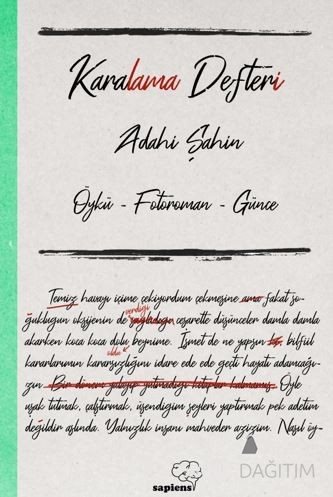 Karalama Defteri
Adahi Şahin
Öykü - Fotoroman - Günce
Temiz havayı içime çekiyordum çekmesine ama fakat so-
verdiği
ğukluğun oksijenin de sağladığı cesarette düşünceler damla damla
akarken koca koca dolu beynime. İsmet de ne yapsın bilfiil
oldu
kararlarımın kararsızlığını idare ede ede geçti hayatı adamcağı-
zın. Bir dönem çalışıp yatmadığı kalmamış. Öyle
uşak tutmak, çalıştırmak, üşendiğim şeyleri yaptırmak pek adetim
değildir aslında. Yalnızlık insanı mahveder azizim. Nasıl öy-
DAĞITIM
sapiens